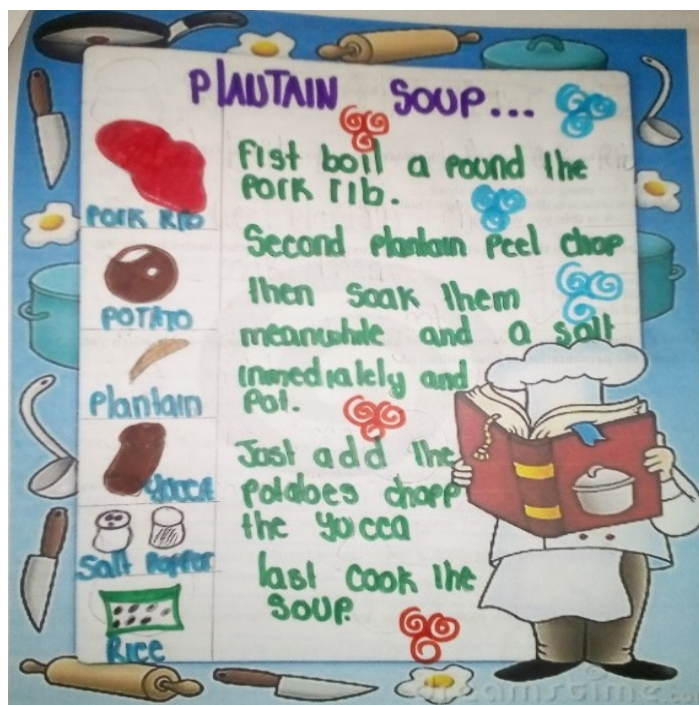 PLAUTAIN SOUP...
PORK RIB
POTATO
Plantain
YUCCA
Salt Pepper
Rice
Fist boil a pound the
pork rib.
Second plantain peel chop
then soak them
meanwhile and a salt
inmediately and
pot.
Just add the
potatoes chopp
the yucca
last cook the
soup.
dreamstime.com